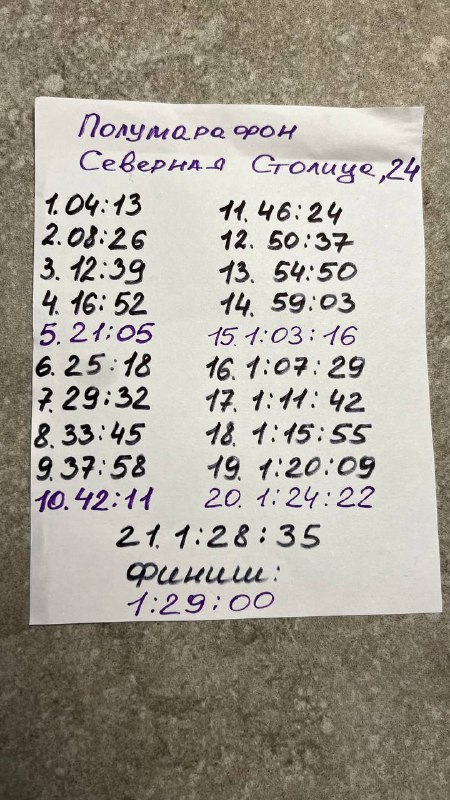 Полумарафон
Северная Столица, 24
1. 04:13
2. 08:26
3. 12:39
4. 16:52
5. 21:05
6. 25:18
7. 29:32
8. 33:45
9. 37:58
10. 42:11
11. 46:24
12. 50:37
13. 54:50
14. 59:03
15. 1:03:16
16. 1:07:29
17. 1:11:42
18. 1:15:55
19. 1:20:09
20. 1:24:22
21. 1:28:35
Финиш:
1:29:00